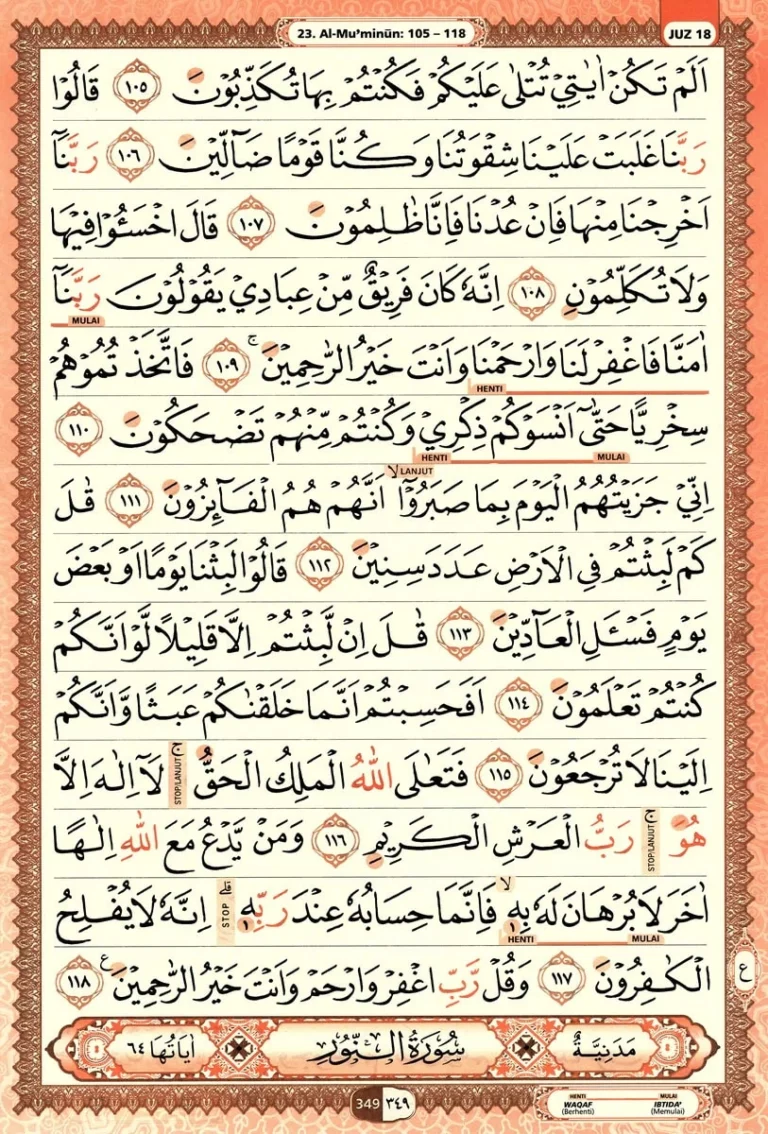 23. Al-Mu'minūn: 105 – 118
JUZ 18
اَلَمْ تَكُنْ اٰيٰتِيْ تُتْلٰى عَلَيْكُمْ فَكُنْتُمْ بِهَا تُكَذِّبُوْنَ ١٠٥ قَالُوْا
رَبَّنَا غَلَبَتْ عَلَيْنَا شِقْوَتُنَا وَكُنَّا قَوْمًا ضَاۤلِّيْنَ ١٠٦ رَبَّنَآ
اَخْرِجْنَا مِنْهَا فَاِنْ عُدْنَا فَاِنَّا ظٰلِمُوْنَ ١٠٧ قَالَ اخْسَـُٔوْا فِيْهَا
وَلَا تُكَلِّمُوْنِ ١٠٨ اِنَّهٗ كَانَ فَرِيْقٌ مِّنْ عِبَادِيْ يَقُوْلُوْنَ رَبَّنَآ
MULAI
اٰمَنَّا فَاغْفِرْ لَنَا وَارْحَمْنَا وَاَنْتَ خَيْرُ الرّٰحِمِيْنَ ۚ ١٠٩ فَاتَّخَذْتُمُوْهُمْ
HENTI
سِخْرِيًّا حَتّٰٓى اَنْسَوْكُمْ ذِكْرِيْ وَكُنْتُمْ مِّنْهُمْ تَضْحَكُوْنَ ١١٠
MULAI HENTI
LANJUT
اِنِّيْ جَزَيْتُهُمُ الْيَوْمَ بِمَا صَبَرُوْٓاۙ اَنَّهُمْ هُمُ الْفَاۤىِٕزُوْنَ ١١١ قٰلَ
كَمْ لَبِثْتُمْ فِى الْاَرْضِ عَدَدَ سِنِيْنَ ١١٢ قَالُوْا لَبِثْنَا يَوْمًا اَوْ بَعْضَ
يَوْمٍ فَسْـَٔلِ الْعَاۤدِّيْنَ ١١٣ قٰلَ اِنْ لَّبِثْتُمْ اِلَّا قَلِيْلًا لَّوْ اَنَّكُمْ
كُنْتُمْ تَعْلَمُوْنَ ١١٤ اَفَحَسِبْتُمْ اَنَّمَا خَلَقْنٰكُمْ عَبَثًا وَّاَنَّكُمْ
اِلَيْنَا لَا تُرْجَعُوْنَ ١١٥ فَتَعٰلَى اللّٰهُ الْمَلِكُ الْحَقُّۚ STOP/LANJUT لَآ اِلٰهَ اِلَّا
هُوَۚ STOP/LANJUT رَبُّ الْعَرْشِ الْكَرِيْمِ ١١٦ وَمَنْ يَّدْعُ مَعَ اللّٰهِ اِلٰهًا
اٰخَرَ لَا بُرْهَانَ لَهٗ بِهٖۙ فَاِنَّمَا حِسَابُهٗ عِنْدَ رَبِّهٖۗ STOP اِنَّهٗ لَا يُفْلِحُ
HENTI MULAI
الْكٰفِرُوْنَ ١١٧ وَقُلْ رَّبِّ اغْفِرْ وَارْحَمْ وَاَنْتَ خَيْرُ الرّٰحِمِيْنَ ࣖ ١١٨
ع
مَدَنِيَّةٌ سُوْرَةُ النُّوْرِ اٰيَاتُهَا ٦٤
349 ٣٤٩
HENTI MULAI
WAQAF IBTIDA'
(Berhenti) (Memulai)